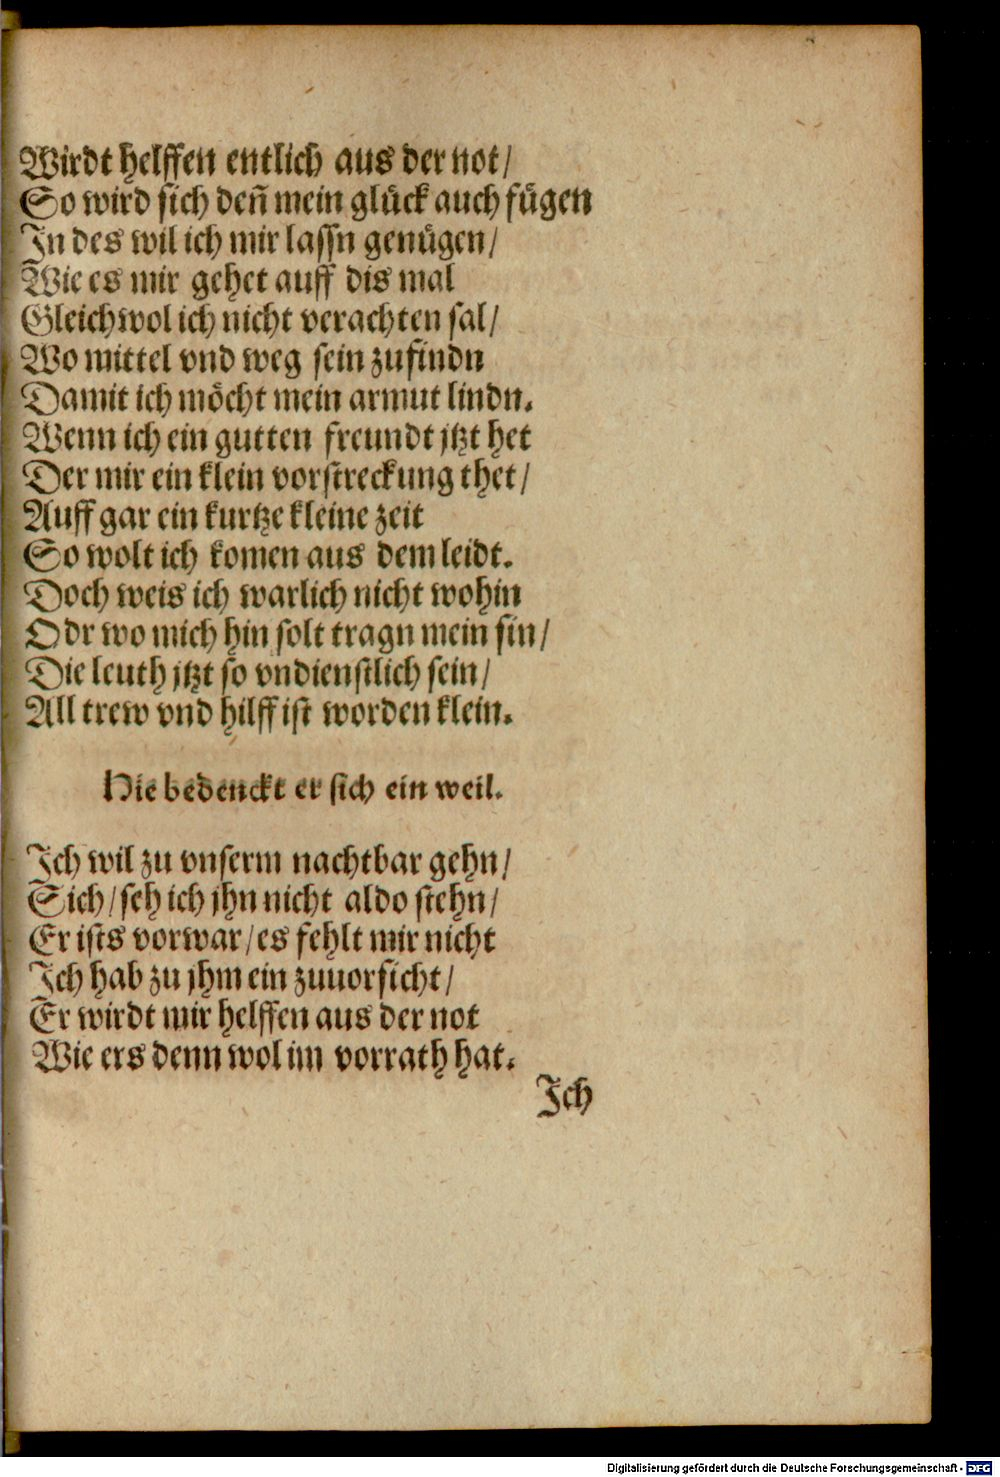 Wirdt helffen entlich aus der not/
So wird sich deñ mein glück auch fügen
In des wil ich mir lassn genügen/
Wie es mir gehet auff dis mal
Gleichwol ich nicht verachten sal/
Wo mittel vnd weg sein zufindn
Damit ich möcht mein armut lindn.
Wenn ich ein gutten freundt jtzt het
Der mir ein klein vorstreckung thet/
Auff gar ein kurtze kleine zeit
So wolt ich komen aus dem leidt.
Doch weis ich warlich nicht wohin
Odr wo mich hin solt tragn mein sin/
Die leuth jtzt so vndienstlich sein/
All trew vnd hilff ist worden klein.
Hie bedenckt er sich ein weil.
Ich wil zu vnserm nachtbar gehn/
Sich/ seh ich jhn nicht aldo stehn/
Er ists vorwar/ es fehlt mir nicht
Ich hab zu jhm ein zuuorsicht/
Er wirdt mir helffen aus der not
Wie ers denn wol im vorrath hat.
Ich
Digitalisierung gefördert durch die Deutsche Forschungsgemeinschaft - DFG